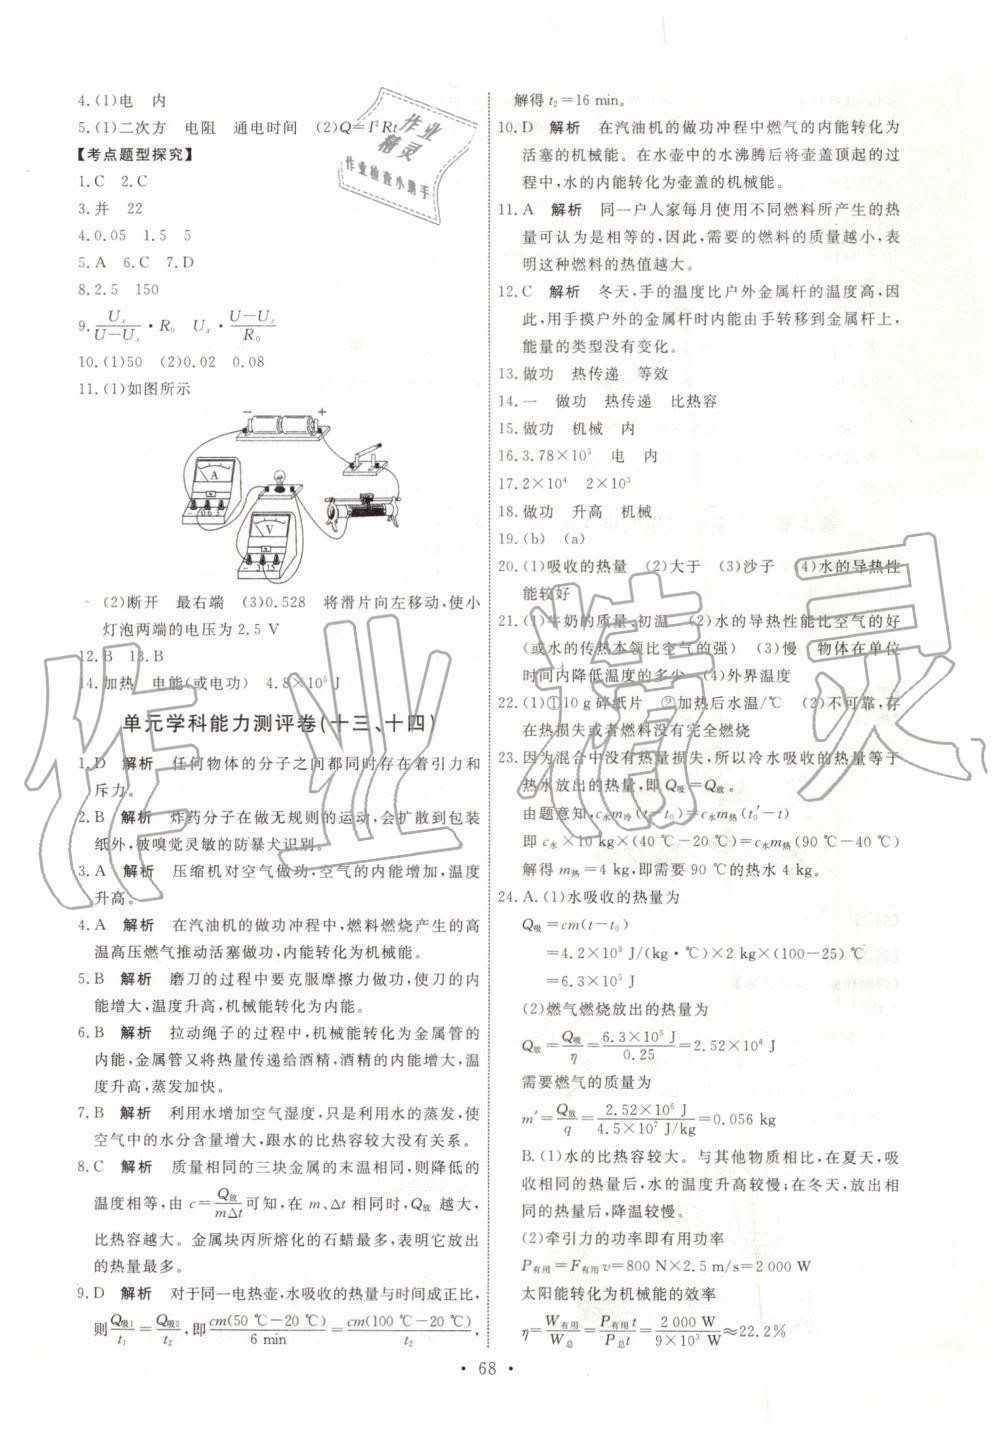 4.(1)电　内
5.(1)二次方　电阻　通电时间　(2)Q=I²Rt
【考点题型探究】
1.C　2.C
3.并　22
4.0.05　1.5　5
5.A　6.C　7.D
8.2.5　150
9. Uₓ/(U-Uₓ)·R₀　Uₓ·(U-Uₓ)/R₀
10.(1)50　(2)0.02　0.08
11.(1)如图所示
- +
A
- 0.6 3
V
- 3 15
(2)断开　最右端　(3)0.528　将滑片向左移动,使小
灯泡两端的电压为2.5 V
12.B　13.B
14.加热　电能(或电功)　4.8×10⁵ J
单元学科能力测评卷(十三、十四)
1.D　解析　任何物体的分子之间都同时存在着引力和
斥力。
2.B　解析　炸药分子在做无规则的运动,会扩散到包装
纸外,被嗅觉灵敏的防暴犬识别。
3.A　解析　压缩机对空气做功,空气的内能增加,温度
升高。
4.A　解析　在汽油机的做功冲程中,燃料燃烧产生的高
温高压燃气推动活塞做功,内能转化为机械能。
5.B　解析　磨刀的过程中要克服摩擦力做功,使刀的内
能增大,温度升高,机械能转化为内能。
6.B　解析　拉动绳子的过程中,机械能转化为金属管的
内能,金属管又将热量传递给酒精,酒精的内能增大,温
度升高,蒸发加快。
7.B　解析　利用水增加空气湿度,只是利用水的蒸发,使
空气中的水分含量增大,跟水的比热容较大没有关系。
8.C　解析　质量相同的三块金属的末温相同,则降低的
温度相等,由 c=Q放/(mΔt) 可知,在 m、Δt 相同时,Q放 越大,
比热容越大。金属块丙所熔化的石蜡最多,表明它放出
的热量最多。
9.D　解析　对于同一电热壶,水吸收的热量与时间成正比,
则 Q吸1/t₁=Q吸2/t₂,即 cm(50 ℃-20 ℃)/6 min=cm(100 ℃-20 ℃)/t₂,
解得 t₂=16 min。
10.D　解析　在汽油机的做功冲程中燃气的内能转化为
活塞的机械能。在水壶中的水沸腾后将壶盖顶起的过
程中,水的内能转化为壶盖的机械能。
11.A　解析　同一户人家每月使用不同燃料所产生的热
量可认为是相等的,因此,需要的燃料的质量越小,表
明这种燃料的热值越大。
12.C　解析　冬天,手的温度比户外金属杆的温度高,因
此,用手摸户外的金属杆时内能由手转移到金属杆上,
能量的类型没有变化。
13.做功　热传递　等效
14.一　做功　热传递　比热容
15.做功　机械　内
16.3.78×10⁵　电　内
17.2×10⁴　2×10³
18.做功　升高　机械
19.(b)　(a)
20.(1)吸收的热量　(2)大于　(3)沙子　(4)水的导热性
能较好
21.(1)牛奶的质量、初温　(2)水的导热性能比空气的好
(或水的传热本领比空气的强)　(3)慢　物体在单位
时间内降低温度的多少　(4)外界温度
22.(1)①10 g碎纸片　②加热后水温/℃　(2)不可靠,存
在热损失或者燃料没有完全燃烧
23.因为混合中没有热量损失,所以冷水吸收的热量等于
热水放出的热量,即 Q吸=Q放。
由题意知,c水m冷(t-t₀)=c水m热(t₀′-t)
即 c水×10 kg×(40 ℃-20 ℃)=c水m热(90 ℃-40 ℃)
解得 m热=4 kg,即需要 90 ℃的热水 4 kg。
24.A.(1)水吸收的热量为
Q吸=cm(t-t₀)
=4.2×10³ J/(kg·℃)×2 kg×(100-25) ℃
=6.3×10⁵ J
(2)燃气燃烧放出的热量为
Q放=Q吸/η=6.3×10⁵ J/0.25=2.52×10⁶ J
需要燃气的质量为
m′=Q放/q=2.52×10⁶ J/(4.5×10⁷ J/kg)=0.056 kg
B.(1)水的比热容较大。与其他物质相比,在夏天,吸
收相同的热量后,水的温度升高较慢;在冬天,放出相
同的热量后,降温较慢。
(2)牵引力的功率即有用功率
P有用=F有用v=800 N×2.5 m/s=2 000 W
太阳能转化为机械能的效率
η=W有用/W总=P有用t/P总t=2 000 W/(9×10³ W)≈22.2%
• 68 •
作业
精灵
作业检查小助手
作业精灵